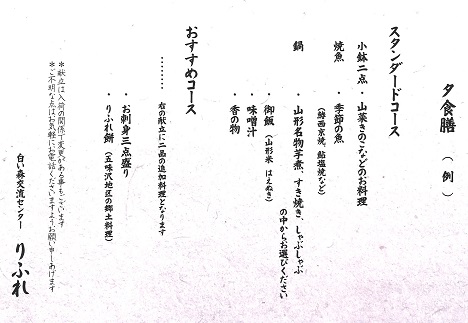 夕食膳（例）
スタンダードコース
小鉢二点・山菜きのこなどのお料理
焼魚・季節の魚
（鱒西京焼、鮎塩焼など）
鍋・山形名物芋煮、すき焼き、しゃぶしゃぶ
の中からお選びください
・御飯（山形米 はえぬき）
・味噌汁
・香の物
おすすめコース
………右の献立に二品の追加料理となります
・お刺身三点盛り
・りふれ餅（五味沢地区の郷土料理）
＊献立は入荷の関係で変更がある事もございます
＊ご不明な点はお気軽にお電話くださいますようお願い申しあげます
白い森交流センター りふれ